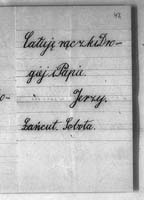 42
Całuję rączki Dro-
giej Papie.
o-
Jerzy.
Łańcut. Sobota.